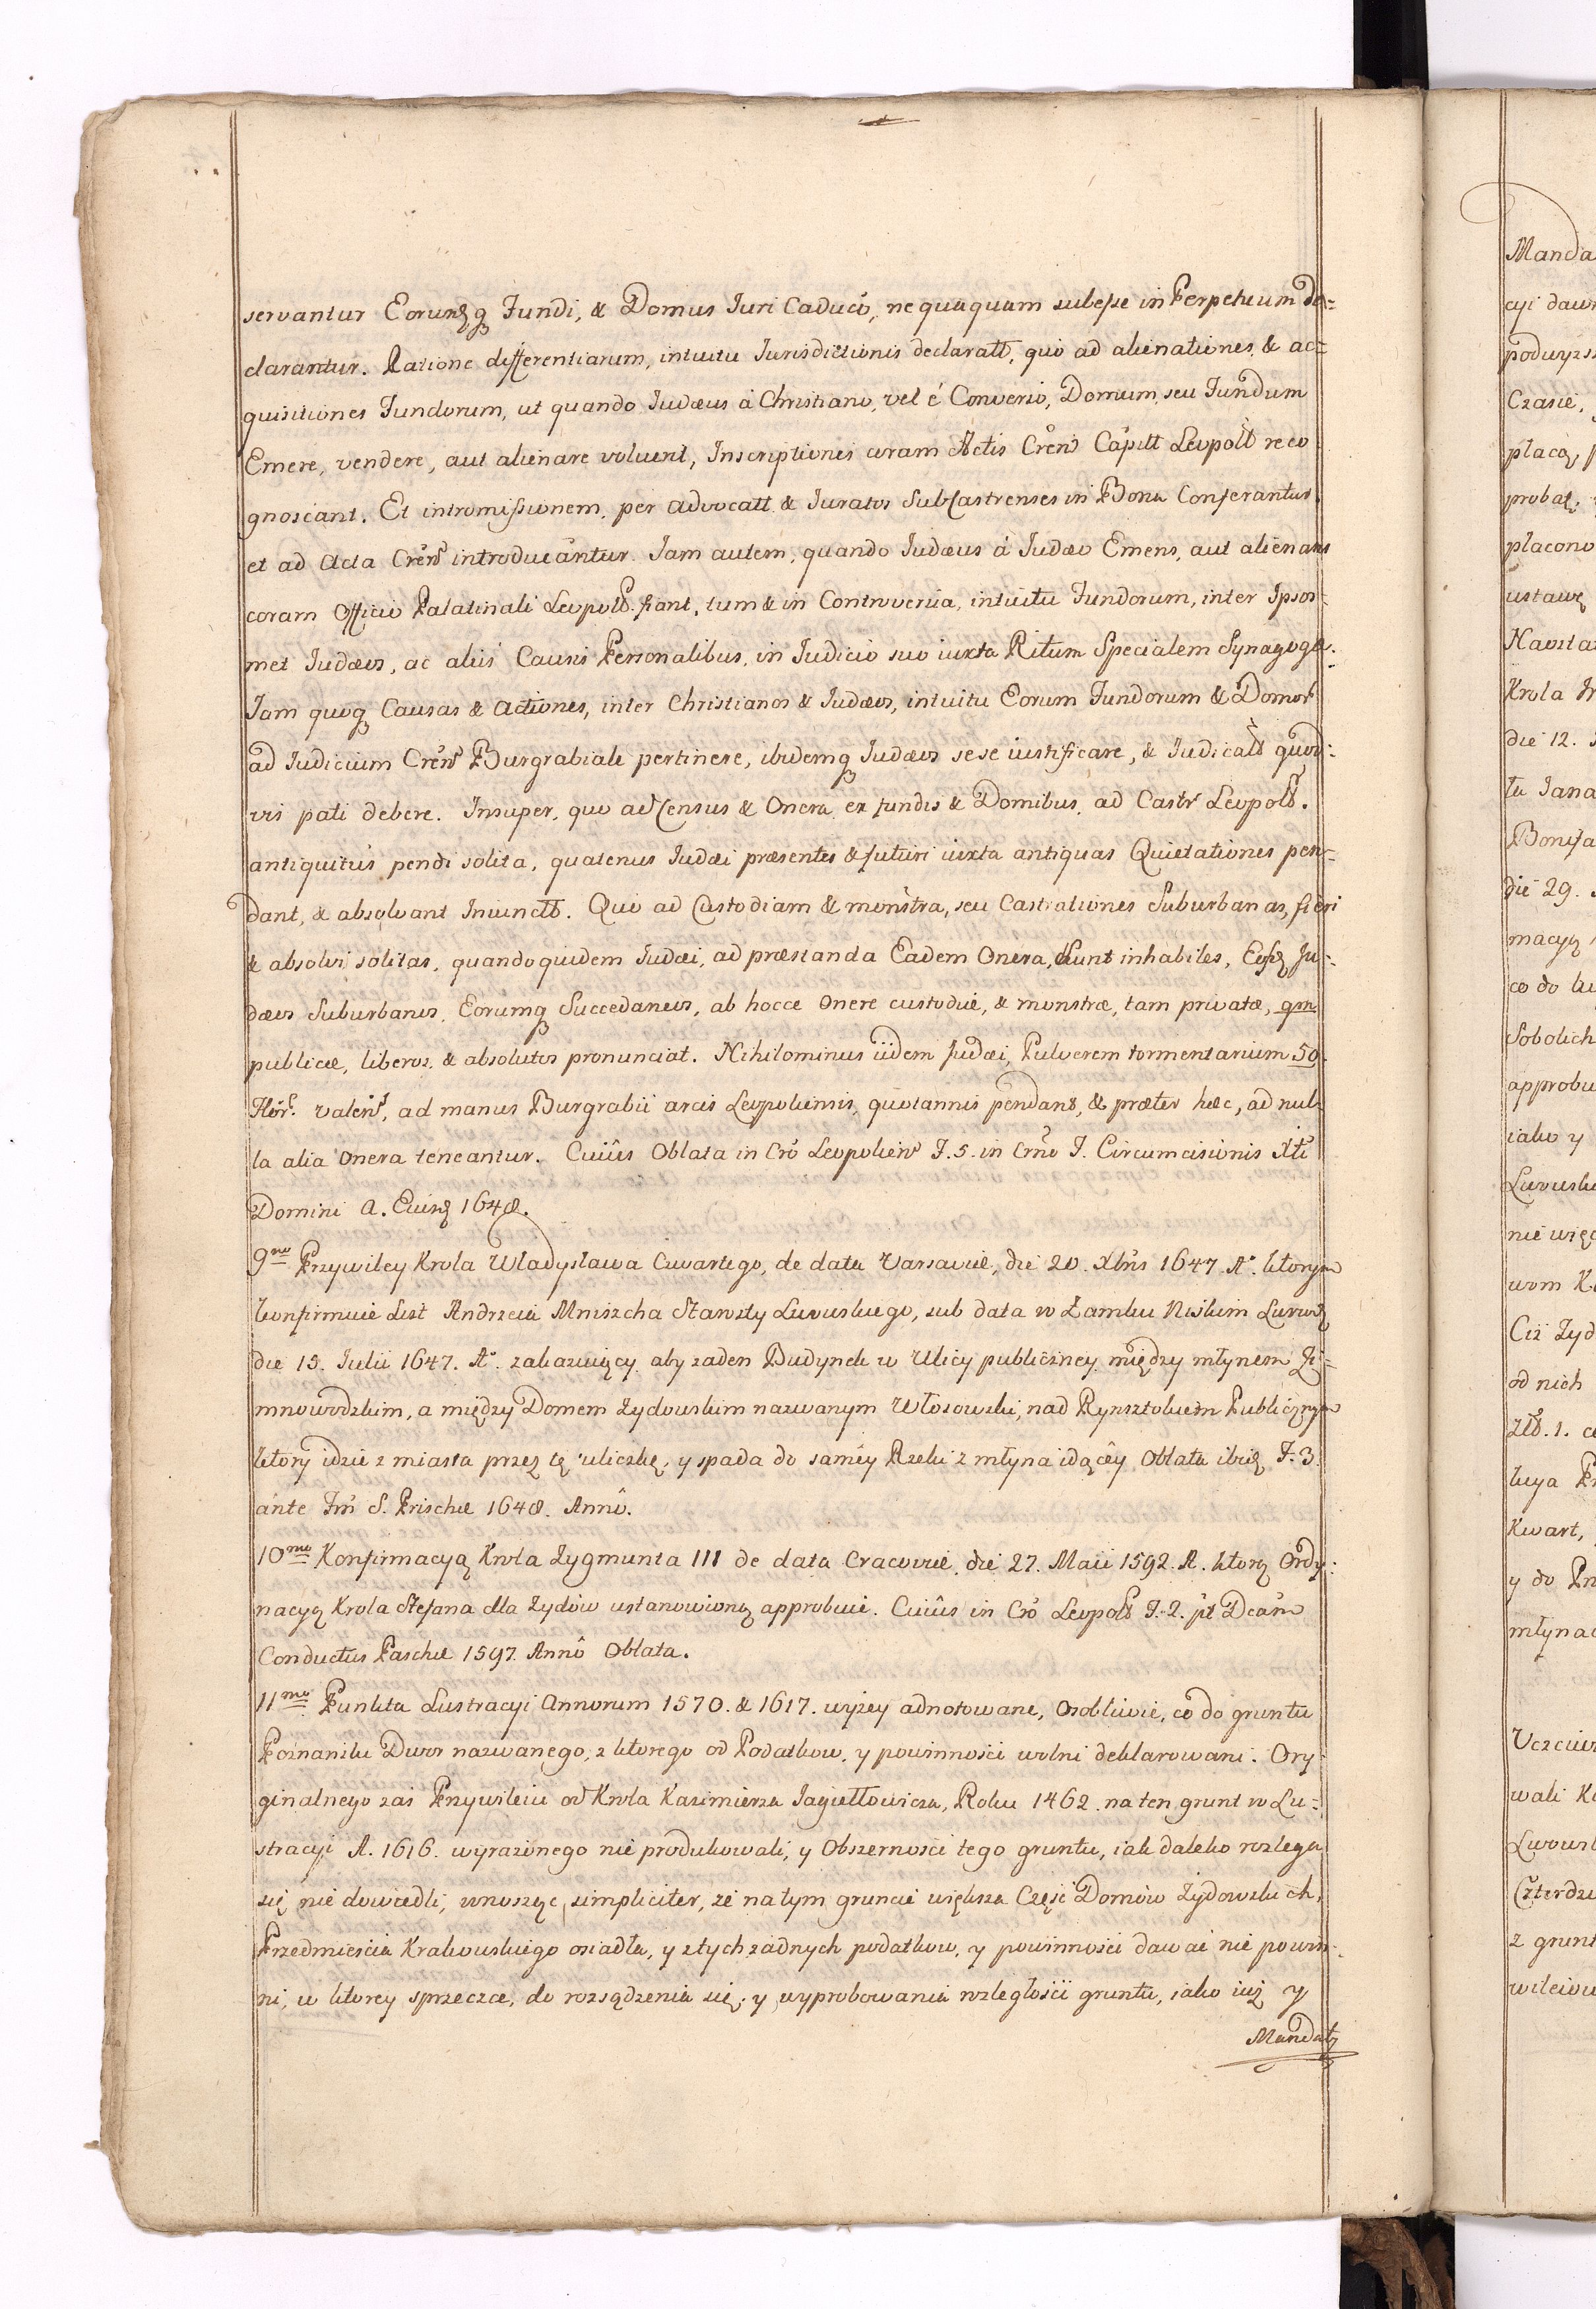 servantur Eorumq Fundi, & Domus Iuri Caducô, nequaquam subesse in Perpetuum de=
clarantur. Ratione differentiarum, intuitu Iurisdictionis declaratt, quo ad alienationes & ac=
quisitiones Fundorum, ut quando Iudæus à Christiano, vel è Converso, Domum, seu Fundum
Emere, vendere, aut alienare voluerit, Inscriptiones coram Actis Crens Capitt Leopold reco
gnoscant. Et intromissionem, per Advocatt & Iuratos SubCastrenses in Bona Conferantur,
et ad Acta Crens introducantur. Iam autem, quando Iudæus à Iudæo Emens, aut alienans
coram Officio Palatinali Leopold. fiant, tum & in Controversia, intuitu Fundorum, inter Ipsos=
met Iudæos, ac aliis Causis Personalibus, in Iudicio suo iuxta Ritum Specialem Synagogæ.
Iam quoq Causas & Actiones, inter Christianos & Iudæos, intuitu Eorum Fundorum & Domor
ad Iudicium Crens Burgrabiale pertinere, ibidemq Iudæos sese iustificare, & Iudicatt quod=
vis pati debere. Insuper, quo ad Census & Onera ex fundis & Domibus, ad Castr Leopold.
antiquitus pendi solita, quatenus Iudæi præsentes & futuri iuxta antiquas Quietationes pen=
dant, & absolvant Iniunctt. Quo ad Custodiam & monstra, seu Castrationes Suburbanas, fieri
& absolvi solitas, quandoquidem Iudæi, ad præstanda Eadem Onera, sunt inhabiles, Eosq Iu=
dæos Suburbanos, Eorumq Succedaneos, ab hocce Onere custodiæ, & monstræ, tam privatæ, qm
publicæ, liberos, & absolutos pronunciat. Nihilominus iidem Judæi, Pulverem tormentarium 50.
Flor. valens, ad manus Burgrabii arcis Leopoliensis, quotannis pendant, & præter hæc, ad nul=
la alia Onera teneantur. Cuiûs Oblata in Cro Leopoliens F. 5. in Crno F. Circumcisionis Xti
Domini A. Eiusq 1648.
9no Przywiley Krola Wladyslawa Czwartego, de data Varsaviæ, die 20. Xbris 1647. Ao. ktorym
konfirmuie List Andrzeia Mniszcha Starosty Lwowskiego, sub data w Zamku Niskim Lwows
die 15. Iulii 1647. Ao. zakazuiący aby zaden Budynek w Ulicy publiczney między młynem Zi=
mnowodzkim, a między Domem Zydowskim nazwanym Włosowski, nad Rynsztokiem Publicznym
ktory idzie z miasta przez tę uliczkę, y spada do saméy Rzeki z młyna idącéy Oblata ibiq F. 3.
ante Fm S. Priscæ 1648. Annô.
10mo Konfirmacyą Krola Zygmunta III de data Cracoviæ, die 27. Maii 1592. A. ktorą Ordy=
nacyą Krola Stefana dla Zydow ustanowioną approbuie. Cuiûs in Cro Leopold F. 2. pt Dcam
Conductus Paschæ 1597. Annô Oblata.
11mo Punkta Lustracyi Annorum 1570. & 1617. wyzey adnotowane, Osobliwie, co do gruntu
Poznanski Dwor nazwanego, z ktorego od Podatkow, y powinności wolni deklarowani. Ory=
ginalnego zas Przywileiu od Krola Kazimierza Jagiełłowicza, Roku 1462. na ten grunt w Lu=
stracyi A. 1616. wyrazonego nie produkowali, y Obszerności tego gruntu, iak daleko rozlega
się nie dowiedli, wnosząc simpliciter, ze na tym gruncie większa Część Domów Zydowskich,
Przedmieścia Krakowskiego osiadła, y z tych zadnych podatkow, y powinności dawać nie powin=
ni, w ktorey sprzeczce, do rozsądzenia się, y wyprobowania rozległości gruntu, iako iuż y
Mandaty